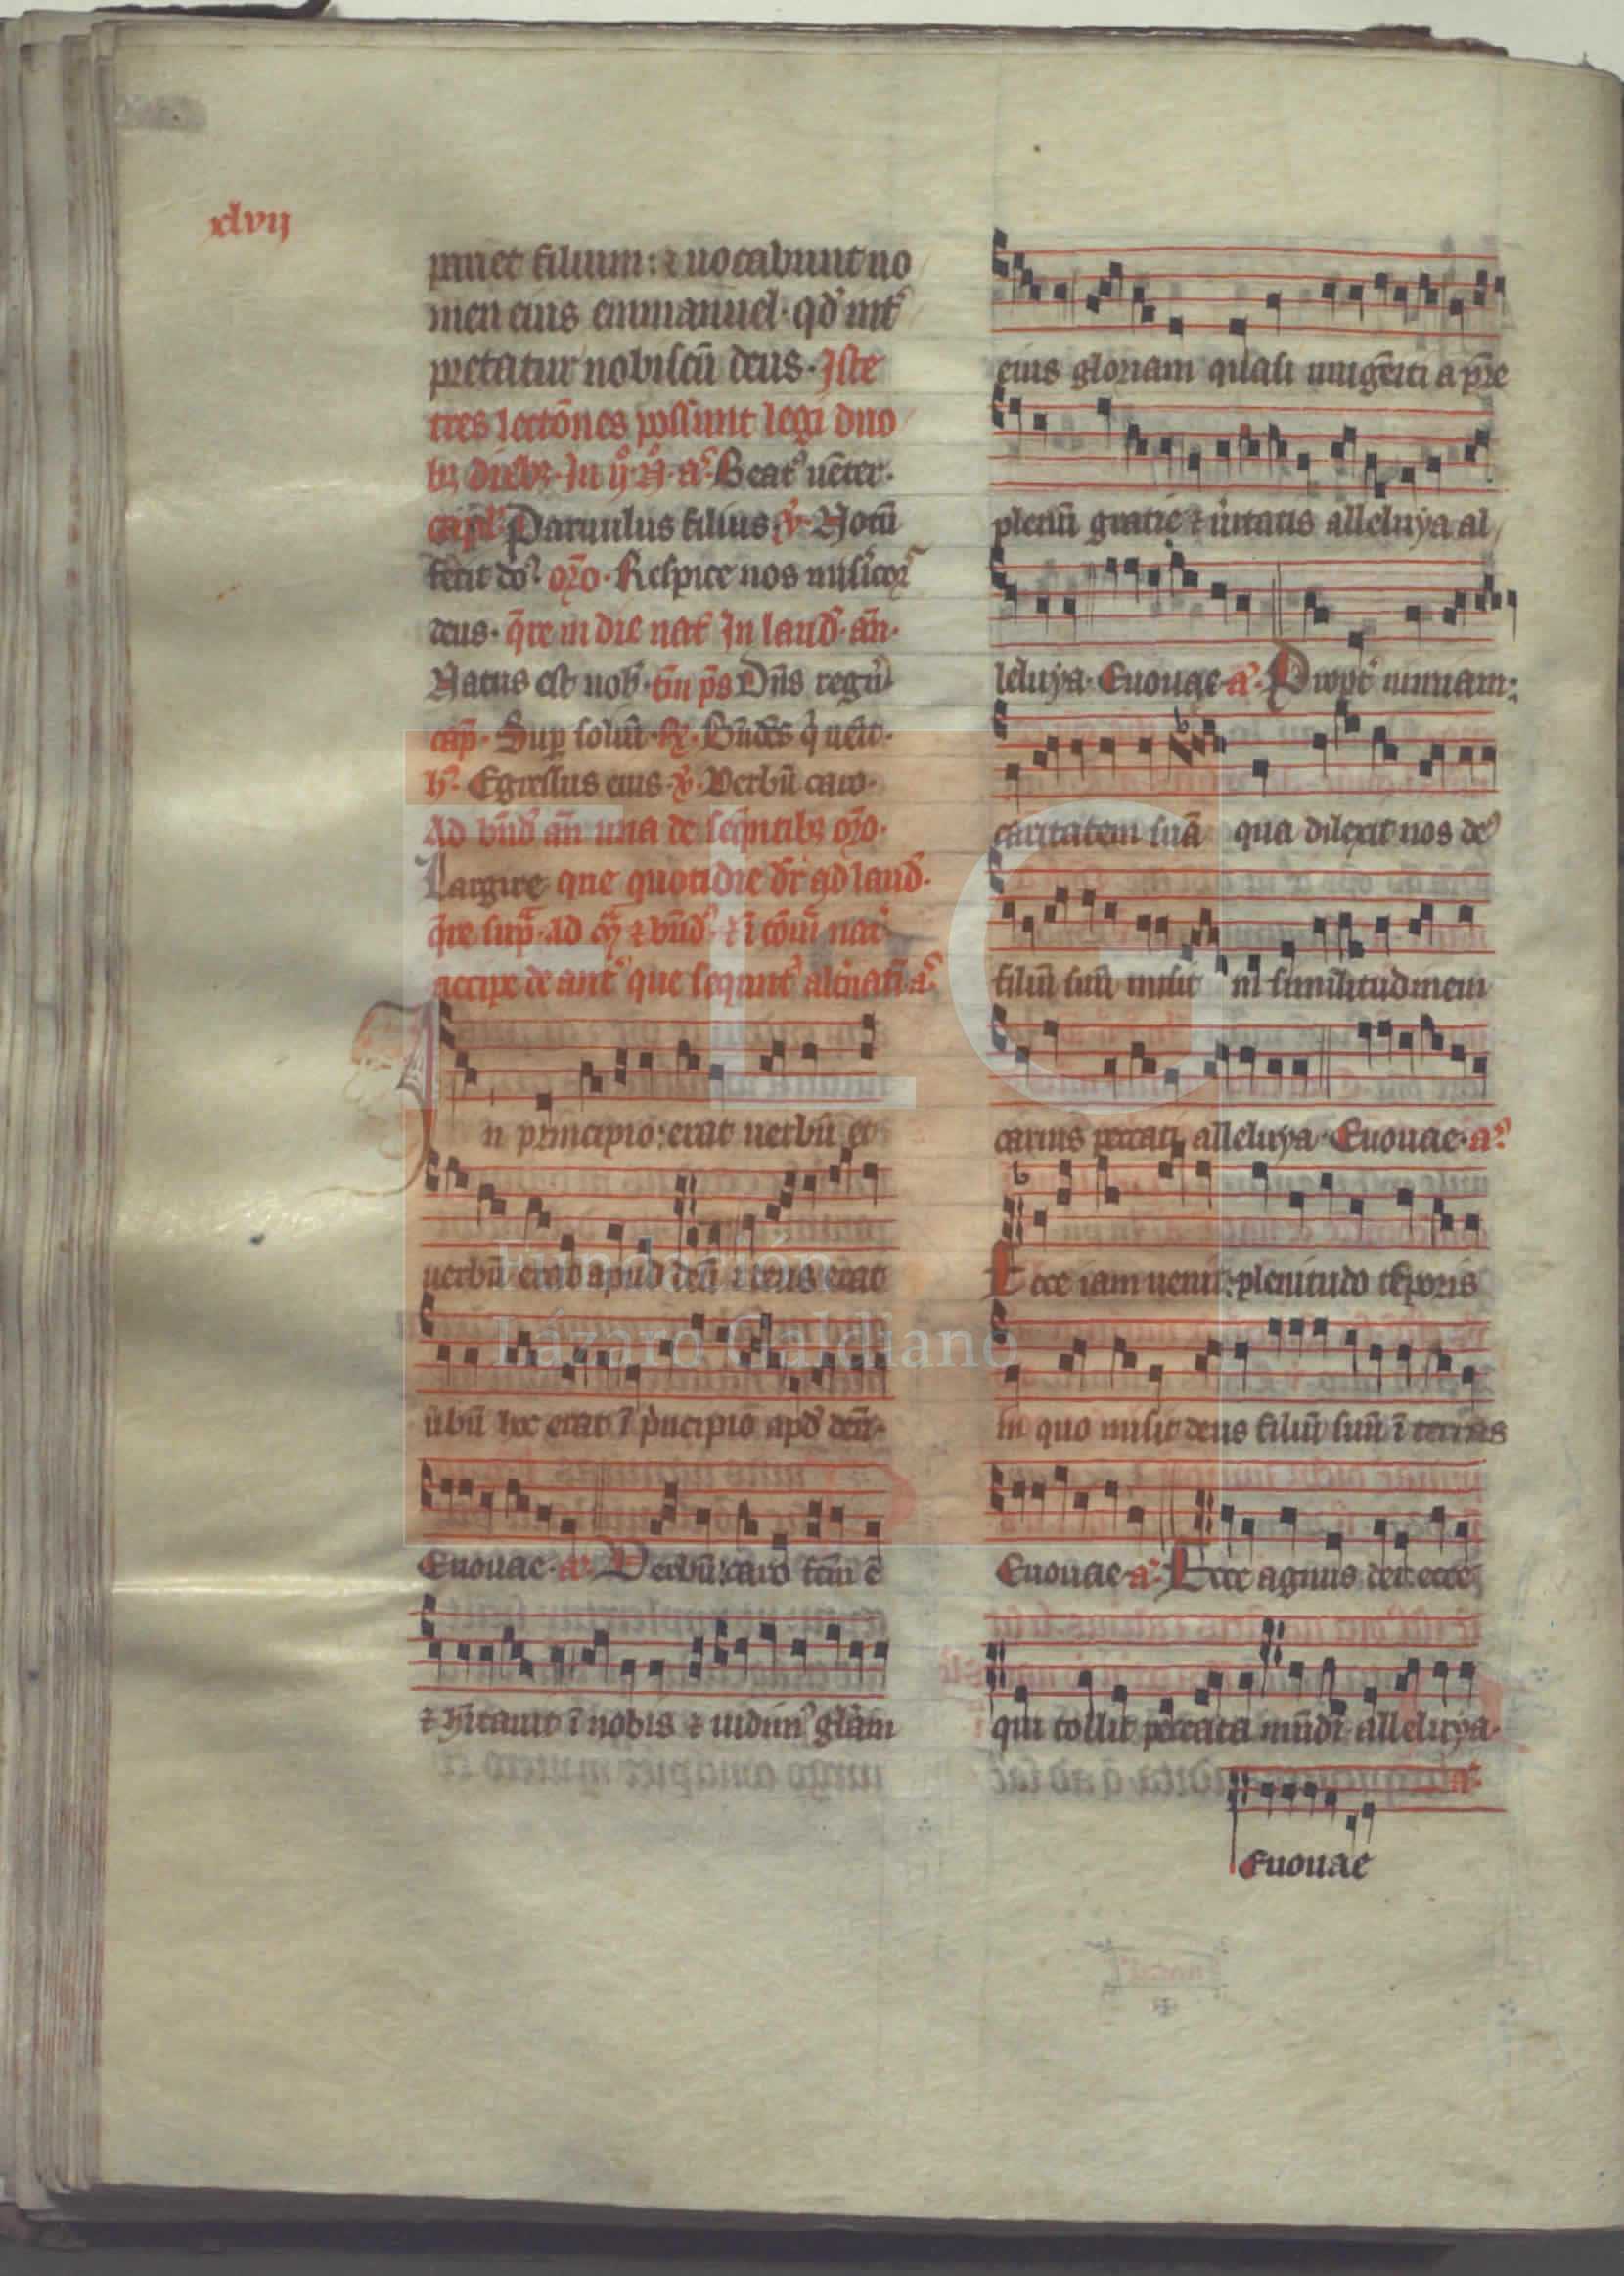 xlvij
pariet filium: ⁊ uocabunt no
men eius emmanuel. qd̓ int̓
pretatur nobiscū deus. Iste
tres lectōnes possunt legi duo
bꝫ diebꝫ. In ij̊. N̊. a᷒. Beat᷒ uēter.
capl̓. Paruulus filius. v̓. Notū
fecit do᷒. or̄o. Respice nos misīcor᷒
deus. q̄re in die nat̓ In laud̓. an̄.
Natus est nob̓. tm̄ ps̄ Dn̄s regn̓
cap̄. Sup̲ soliū. ꝶ. Bn̄dc̄s q̓ uēit.
h᷒. Egressus eius. v̓. Verbū caro.
Ad bn̄d̓ an̄ una de seqn̄tibꝫ or̄o.
Largire que quotidie dr̄ ad laud̓.
q̄re sup̄. Ad m̄ ⁊ bn̄d̓. ⁊ ī
accipe de ant̓ que sequnt᷒ alt̓natī. a᷒
In principio: erat uerbū et
uerbū erat apud deū ⁊ deus erat
ūbū hoc erat ī p̓ncipio apd̓ deū.
Euouae. a᷒. Verbū: caro fcm̄ ē
⁊ hītauit ī nobis ⁊ uidim᷒ glām
eius gloriam quasi unigēiti a pr̄e
plenū gratie ⁊ ūitatis alleluya al
leluya. Euouae. a᷒. Propt̓ nimiam:
caritatem suā qua dilexit nos de᷒
filiū suū misit in similitudinem
carnis peccati alleluya. Euouae. a᷒.
Ecce iam uenit: plenitudo tēporis
in quo misit deus filiū suū ī terras
Euouae. a᷒. Ecce agnus dei: ecce
qui tollit peccata mūdi. alleluya.
a᷒.
Euouae
FLG
Fundación
Lázaro Galdiano